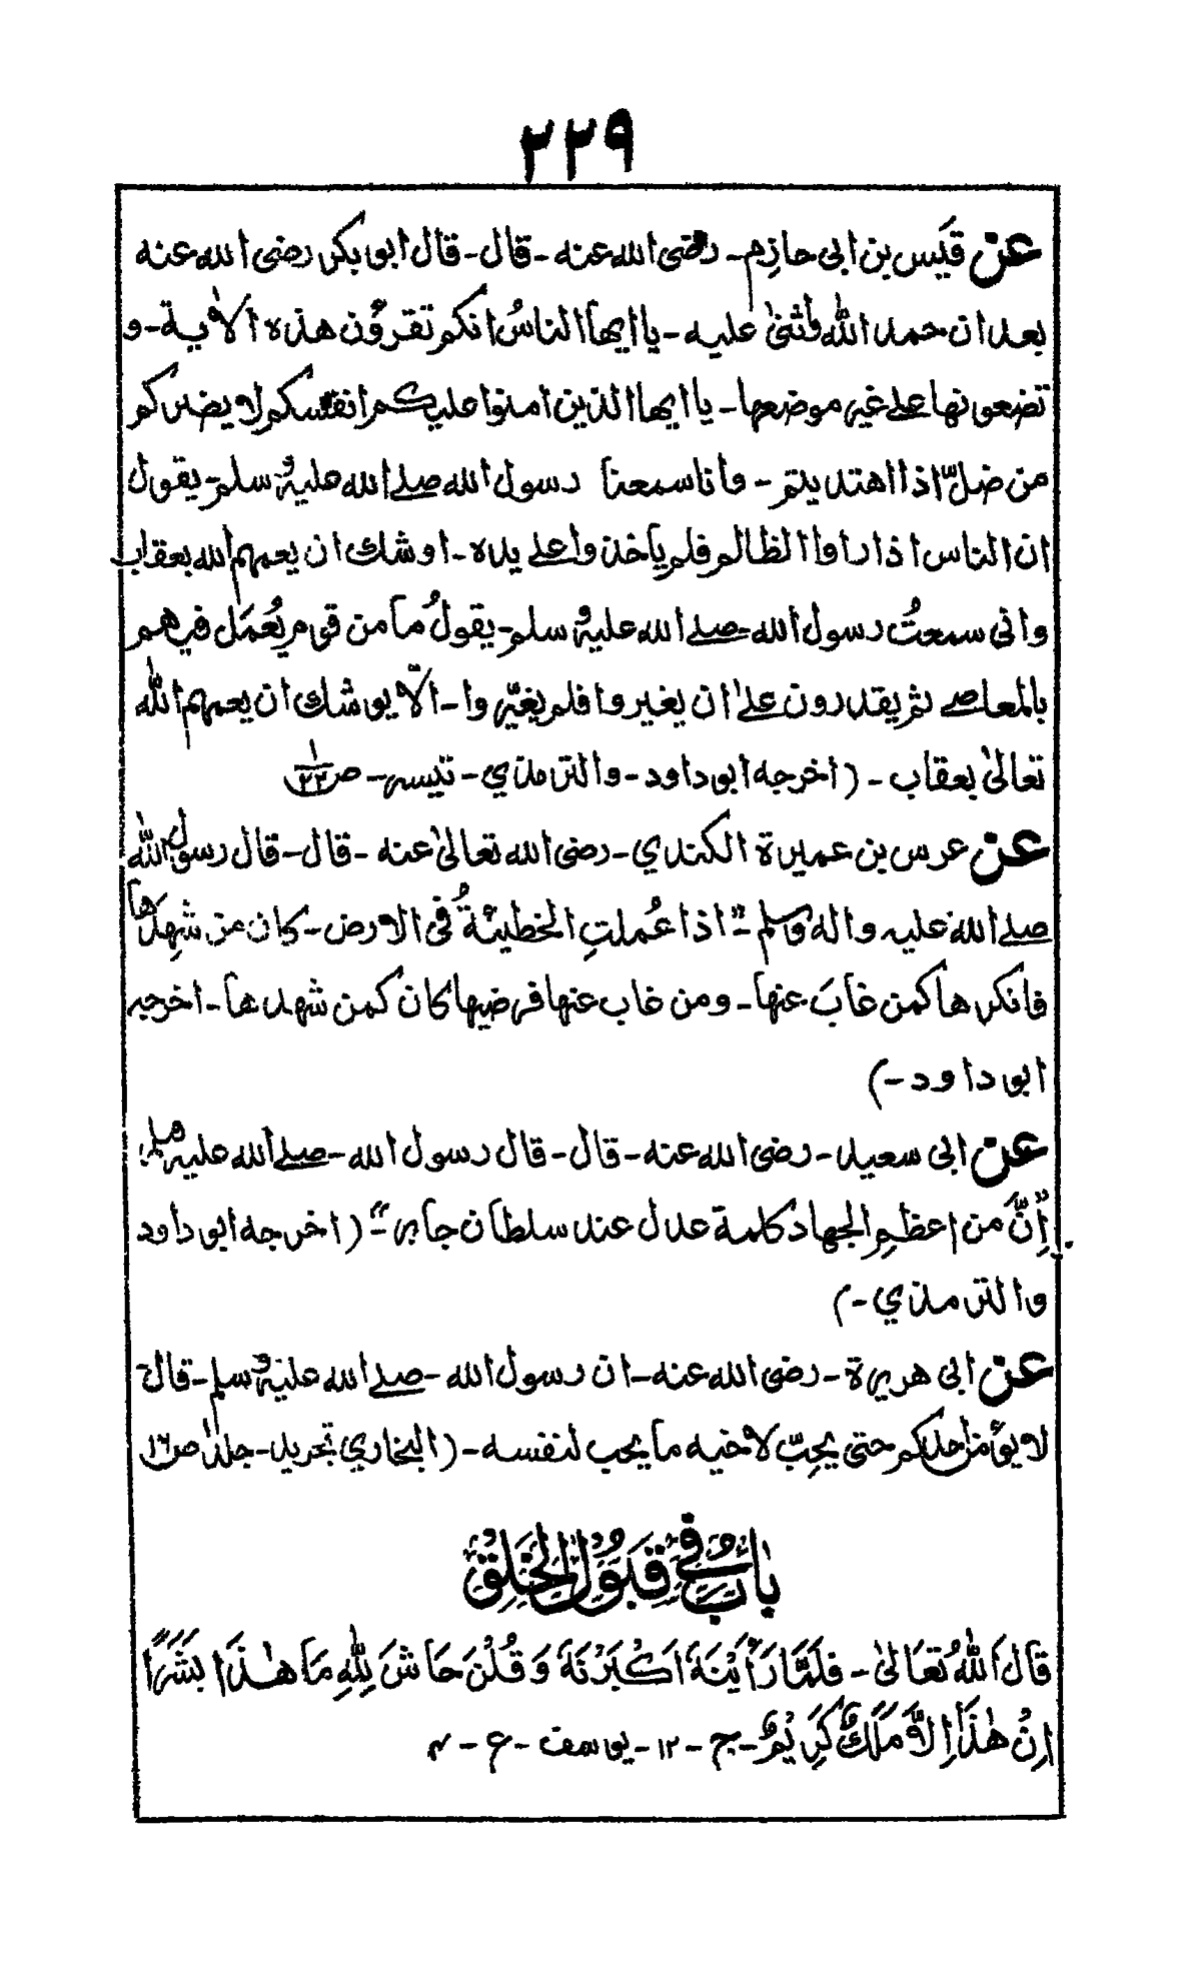 ٢٢٩
عن قيس بن ابى حازم - رضى الله عنه - قال - قال ابو بكر رضى الله عنه
بعد ان حمد الله واثنىٰ عليه - يا ايها الناسُ انكم تقرؤن هذه الاٰية - و
تضعونها على غير موضعها - يا ايها الذين امنوا عليكم انفسكم لا يضركم
من ضلّ اذا اهتديتم - وانا سمعنا رسول الله صلے الله عليه وسلم - يقول
ان الناس اذا راوا الظالم فلم ياخذوا علے يده - اوشك ان يعمهم الله بعقاب
وانى سمعتُ رسول الله - صلے الله عليه وسلم - يقولُ ما من قوم يُعمَل فيهم
بالمعاصے ثم يقدرون علےٰ ان يغيروا فلم يغيّروا - الّا يوشك ان يعمهم الله
تعالىٰ بعقاب - (اخرجه ابو داود - والترمذي - تيسير - ص ٢٢/١
عن عرس بن عميرة الكندي - رضى الله تعالىٰ عنه - قال - قال رسول الله
صلے الله عليه واله وسلم - " اذا عُملتِ الخطيئةُ فى الارض - كان من شهِدها
فانكرها كمن غابَ عنها - ومن غاب عنها فرضيها كان كمن شهدها - اخرجه
ابو داود -)
عن ابى سعيد - رضى الله عنه - قال - قال رسول الله - صلے الله عليه وسلم
اِنَّ من اعظمِ الجهاد كلمة عدل عند سلطان جابر - " (اخرجه ابو داود
والترمذي -)
عن ابى هريرة - رضى الله عنه - ان رسول الله - صلے الله عليه وسلم - قال
لا يؤمن احدكم حتى يحِبّ لاخيه ما يحب لنفسه - (البخاري تجريد - جلد ١ ص ١٦
بَابٌ فِي قَبُوْلِ الْخَلْقِ
قَالَ اللهُ تَعَالىٰ - فَلَمَّا رَاَيْنَهٗ اَكْبَرْنَهٗ وَقُلْنَ حَاشَ لِلّٰهِ مَا هٰذَا بَشَرًا
اِنْ هٰذَا اِلَّا مَلَكٌ كَرِيْمٌ - ج - ١٢ - يوسف - ع - ٤